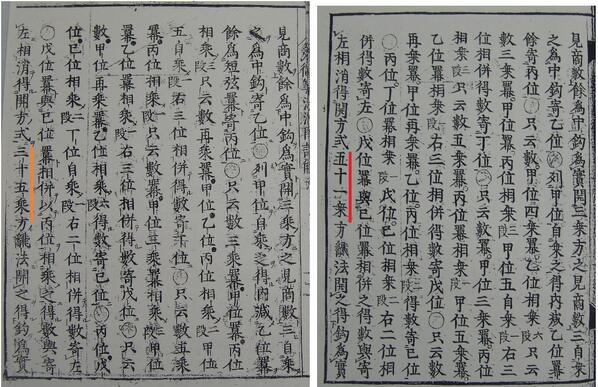 見商數餘爲實開三乘方之見商數三自乘
之爲中鈎寄乙位〇列甲位自乘之得內減乙位羃
餘爲短弦羃寄丙位〇只云數再乘羃甲位羃丙位
相乘段
五自乘段一右三位相併得數寄丁位〇只云數五乘
羃丙位相乘段只云數羃甲位三乘羃丙位
羃乙位羃相乘段右三位相併得數寄戊位〇只云
數甲位再乘羃乙位相乘段六得數寄己位〇丙位戊
位己位相乘段二丁位自乘段一右二位相併得數寄左
〇戊位羃與己位羃相併以丙位相乘之得數與寄
左相消得開方式三十五乘方飜法開之得鈎爲實
見商數餘爲實開三乘方之見商數三自乘
之爲中鈎寄乙位〇列甲位自乘之得內減乙位羃
餘寄丙位〇只云數甲位四乘羃乙位相乘段六只云
數三乘羃甲位羃丙位相乘段甲位五自乘段一右三
位相併得數寄丁位〇只云數羃甲位三乘羃丙位
相乘段只云數五乘羃丙位羃相乘段一甲位
乙位羃相乘段右三位相併得數寄戊位〇只云數
再乘羃甲位再乘羃乙位丙位相乘段得數寄己位
〇丙位丁位羃相乘段一戊位己位相乘段二右二位相
併得數寄左〇戊位羃與己位羃相併之得數與寄
左相消得開方式五十一乘方飜法開之得鈎爲實